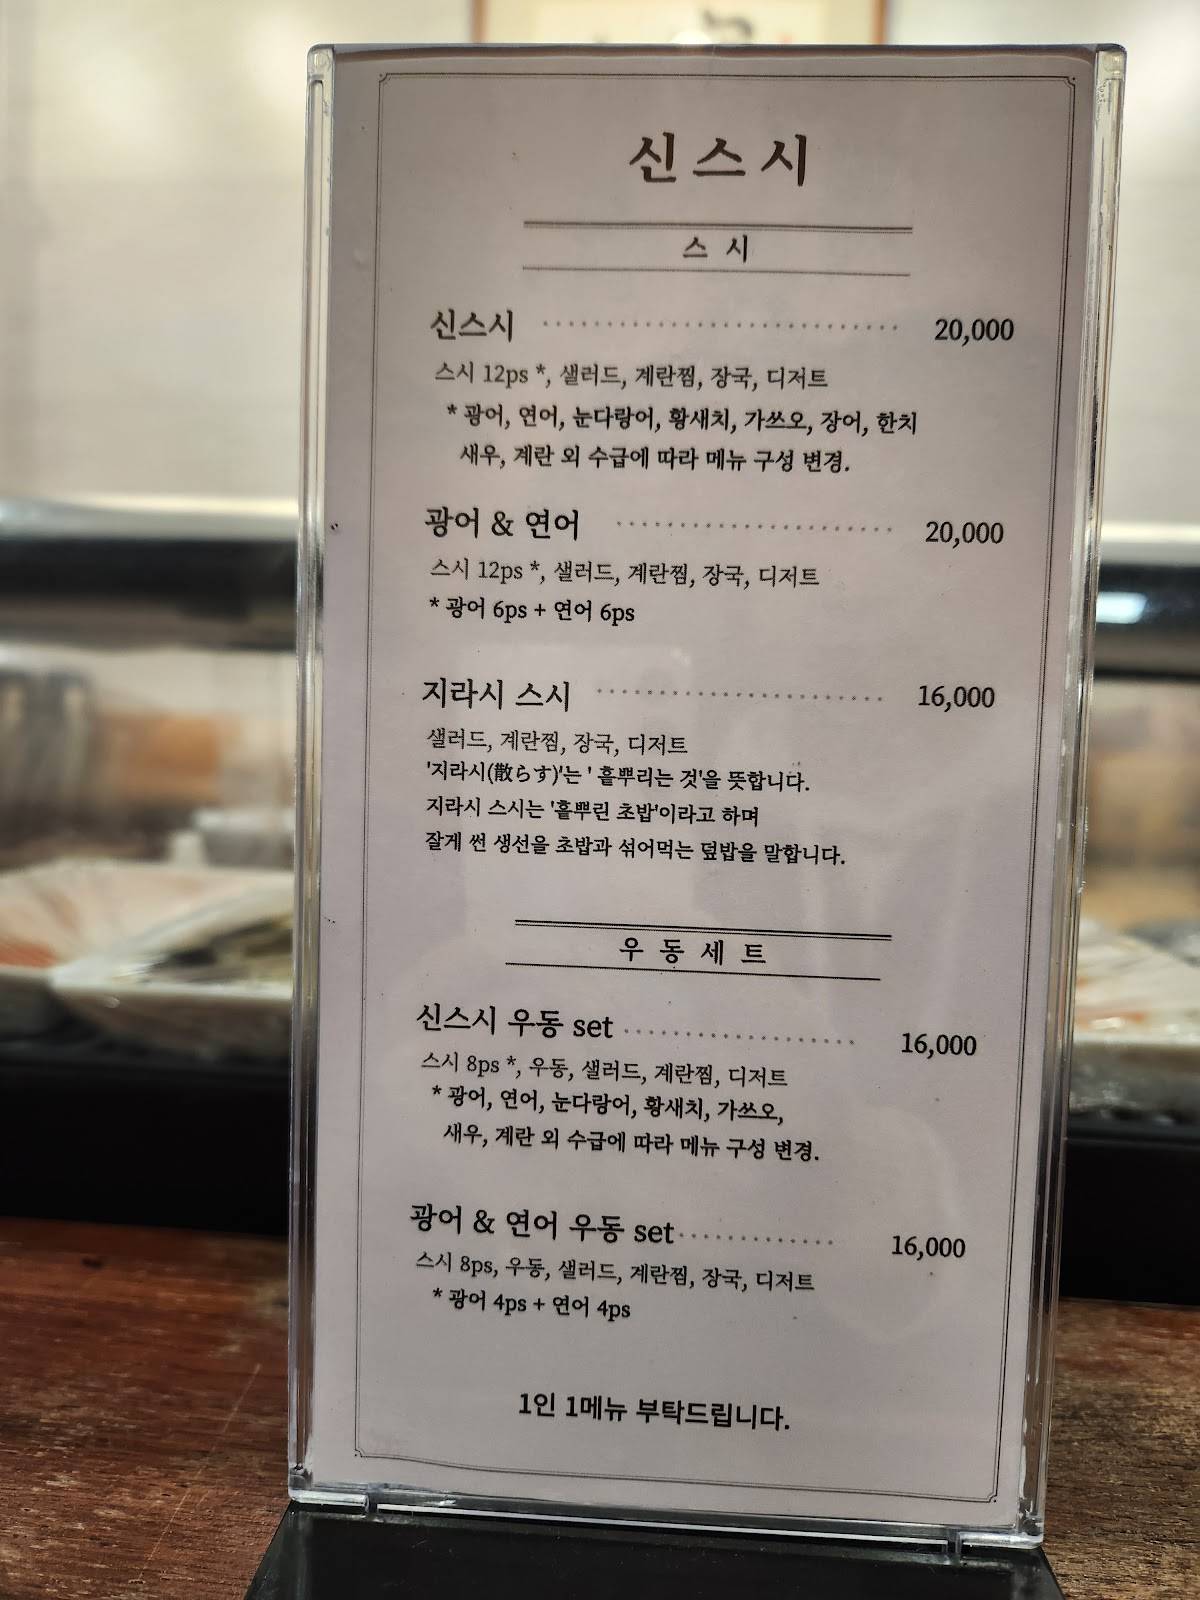 신스시
스시
신스시 ···························· 20,000
스시 12ps *, 샐러드, 계란찜, 장국, 디저트
* 광어, 연어, 눈다랑어, 황새치, 가쓰오, 장어, 한치
새우, 계란 외 수급에 따라 메뉴 구성 변경.
광어 & 연어 ······················ 20,000
스시 12ps *, 샐러드, 계란찜, 장국, 디저트
* 광어 6ps + 연어 6ps
지라시 스시 ······················· 16,000
샐러드, 계란찜, 장국, 디저트
'지라시(散らす)'는 ' 흩뿌리는 것'을 뜻합니다.
지라시 스시는 '흩뿌린 초밥'이라고 하며
잘게 썬 생선을 초밥과 섞어먹는 덮밥을 말합니다.
우동세트
신스시 우동 set ··················· 16,000
스시 8ps *, 우동, 샐러드, 계란찜, 디저트
* 광어, 연어, 눈다랑어, 황새치, 가쓰오,
새우, 계란 외 수급에 따라 메뉴 구성 변경.
광어 & 연어 우동 set ············· 16,000
스시 8ps, 우동, 샐러드, 계란찜, 장국, 디저트
* 광어 4ps + 연어 4ps
1인 1메뉴 부탁드립니다.